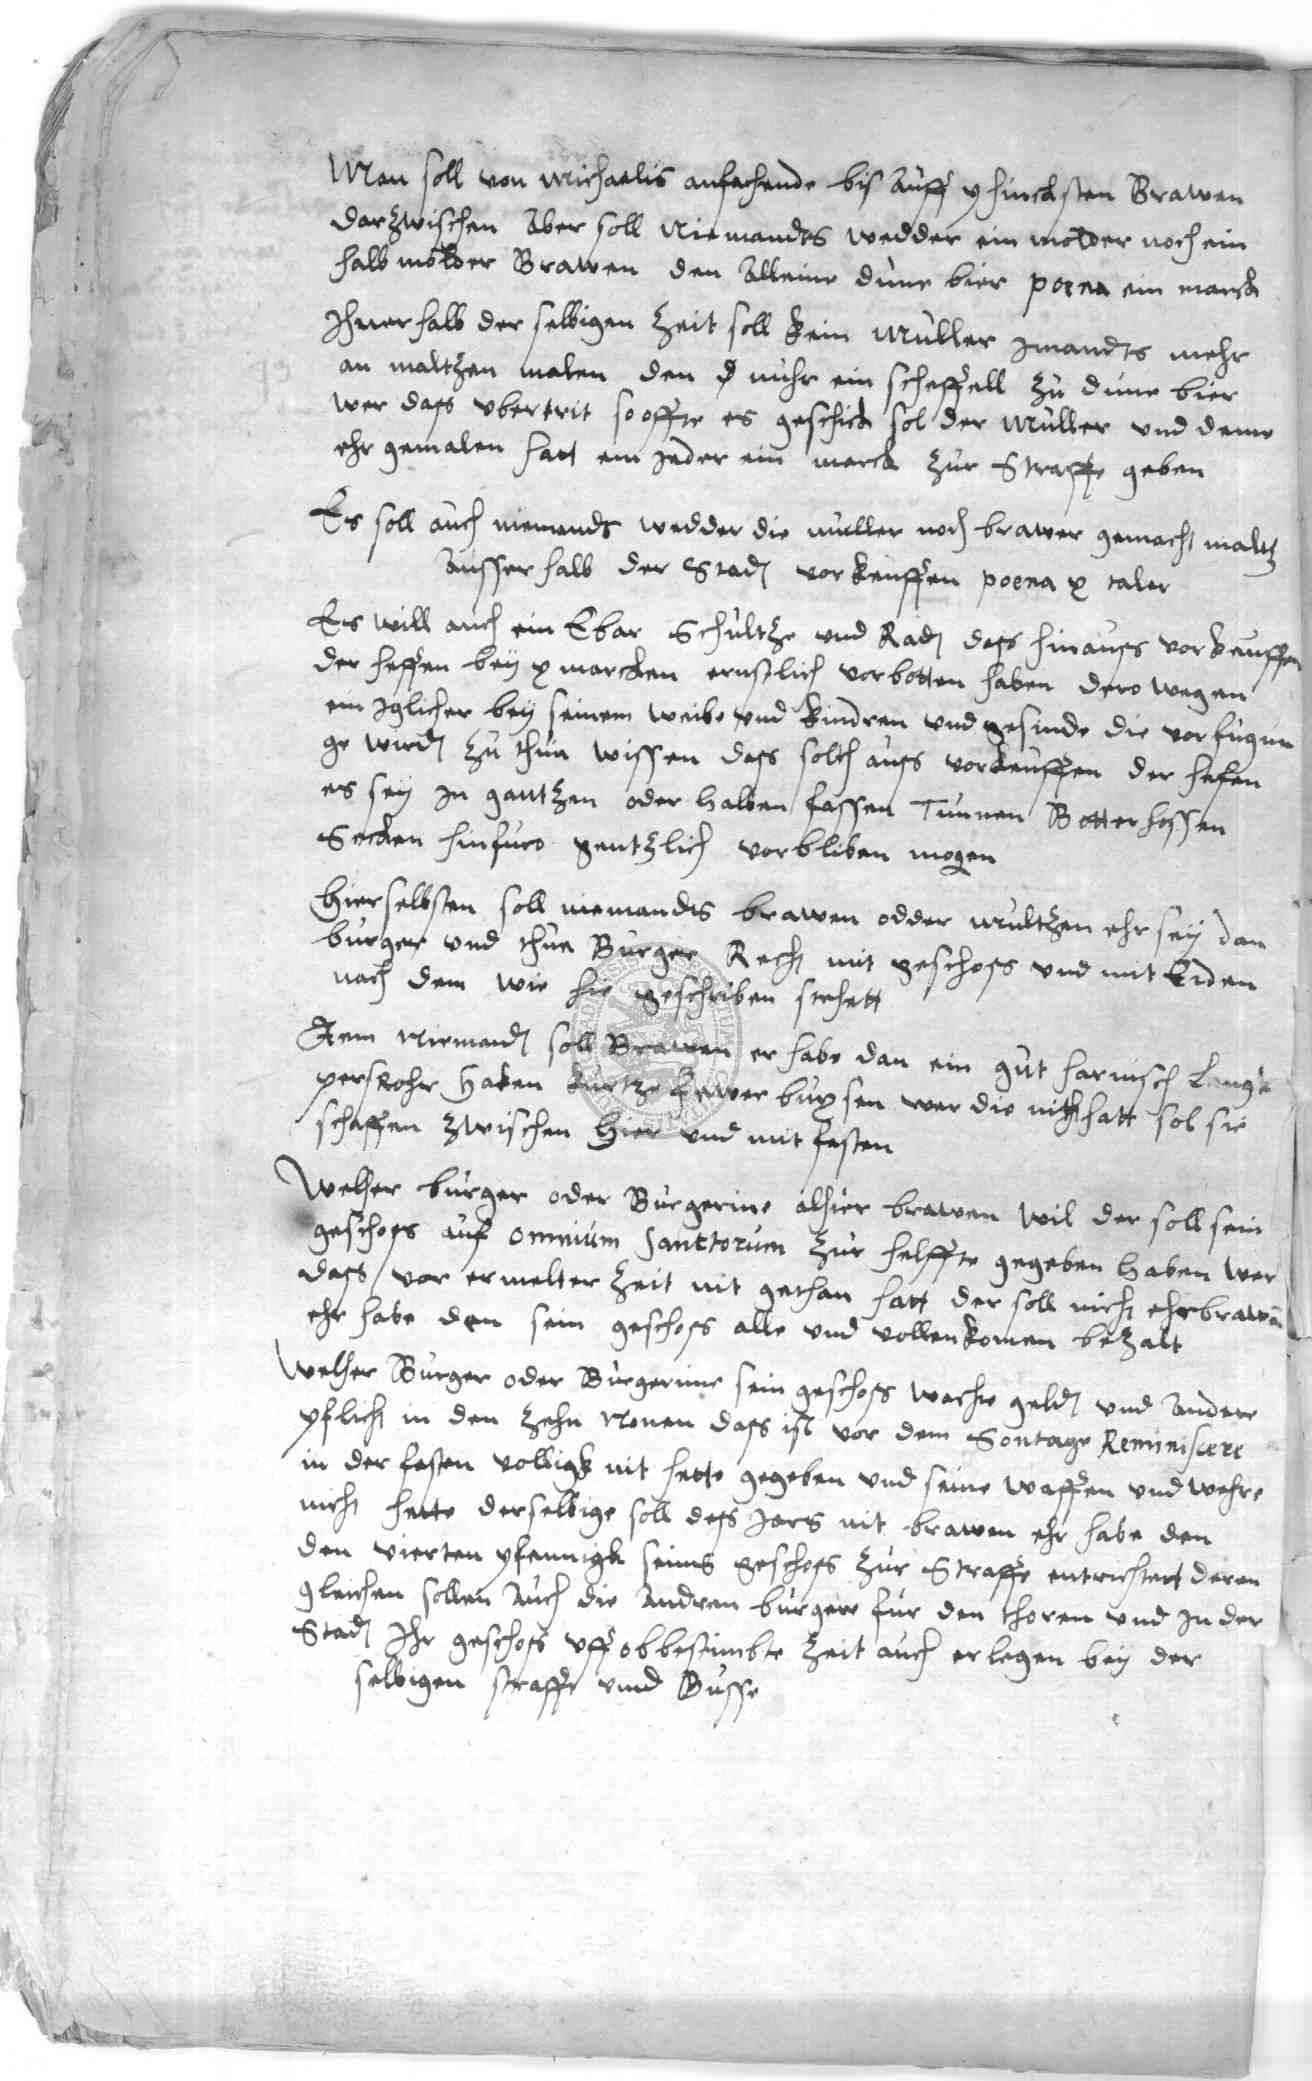 Man soll von Michaelis anfahende bis auff phincksten Brawen
darzwischen Aber soll Niemandts wedder ein molder noch ein
halb molder Brawen den Alleine dune bier poena ein marck
Ihnerhalb der selbigen Zeit soll kein Muller Jmandts mehr
an maltzen malen den nuhr ein scheffell zu dune bier
wer dass vbertrit so offte es geschich sol der Muller vnd deme
ehr gemalen hatt ein Jeder ein marck zur Straffe geben
Es soll auch niemandt wedder die muller noch brawer gemacht maltz
Ausserhalb der Stadt vorkeuffen poena x taler
Es will auch ein Ebar Schultze vnd Radt dass hinauss vorkeuffen
der heffen bey x marcken ernstlich vorbotten haben dero wegen
ein Jglicher bey seinem weibe vnd kindren vnd gesinde die vorfugun
ge wirdt zu thun wissen dass solch auss vorkeuffen der hefen
es sey Jn gantzen oder halben fassen Tunnen Botterhossen
Secken hinfuro gentzlich vorbliben mogen
Hierselbsten soll niemandts brawen odder multzen ehr sey dan
burger vnd thue Burger Recht mit geschoss vnd mit Eiden
nach dem wie hie geschriben stehett
Item Niemandt soll Brawen er habe dan ein gut harnisch Lange
 Haken kurtze fewer buxsen wer die nicht hatt sol sie
schaffen zwischen Hier vnd mit fasten
Welher burger oder Burgerine alhier brawen wil der soll sein
geschoss auf omnium sanctorum zur helffte gegeben haben wer
dass vor ermelter Zeit nit gethan hatt der soll nicht ehr brawen
ehr habe den sein geschoss alle vnd vollenkomen bezalt
Welher Burger oder Burgerine sein geschoss wache geldt vnd Andere
pflicht in den Zehn Nonen dass ist vor dem Sontage Reminiscere
in der fasten volligk nit hette gegeben vnd seine waffen vnd wehre
nicht hette derselbige soll dess Jars nit brawen ehr habe den
den vierten pfennigk seins geschoss zur Straffe entrichtert deren
gleichen sollen Auch die Andren burger fur den thoren vnd Jn der
Stadt Jhr geschoss vff obbestimbte Zeit auch erlegen bey der
selbigen straffe vnnd Busse